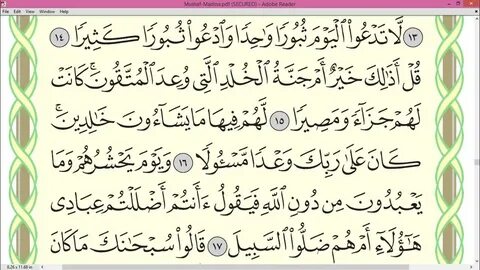 Mushaf-Madina.pdf (SECURED) - Adobe Reader
File Edit View Window Help
١٣ لَّا تَدْعُوا۟ ٱلْيَوْمَ ثُبُورًا وَٰحِدًا وَٱدْعُوا۟ ثُبُورًا كَثِيرًا ١٤
قُلْ أَذَٰلِكَ خَيْرٌ أَمْ جَنَّةُ ٱلْخُلْدِ ٱلَّتِى وُعِدَ ٱلْمُتَّقُونَ ۚ كَانَتْ
لَهُمْ جَزَآءً وَمَصِيرًا ١٥ لَّهُمْ فِيهَا مَا يَشَآءُونَ خَٰلِدِينَ ۚ
كَانَ عَلَىٰ رَبِّكَ وَعْدًا مَّسْـُٔولًا ١٦ وَيَوْمَ يَحْشُرُهُمْ وَمَا
يَعْبُدُونَ مِن دُونِ ٱللَّهِ فَيَقُولُ ءَأَنتُمْ أَضْلَلْتُمْ عِبَادِى
هَٰٓؤُلَآءِ أَمْ هُمْ ضَلُّوا۟ ٱلسَّبِيلَ ١٧ قَالُوا۟ سُبْحَٰنَكَ مَا كَانَ
8.26 x 11.69 in